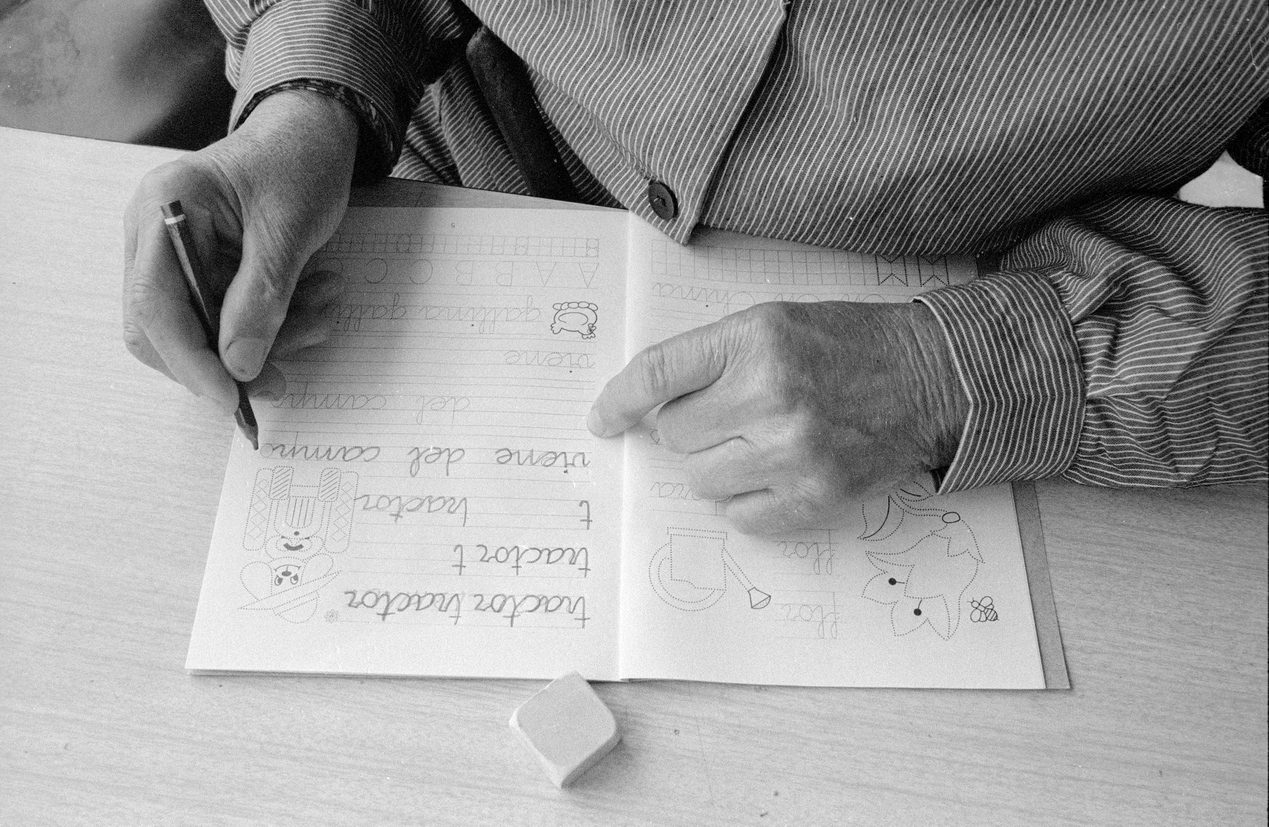 flor
flor
tractor tractor
tractor t
t tractor
viene del campo
del campo
viene
gallina galli